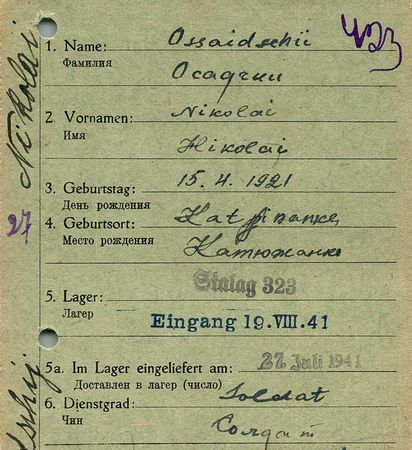 423
Nikolai
1. Name: Ossaidschii
Фамилия
Осадчии
2. Vornamen: Nikolai
Имя
Николай
3. Geburtstag: 15. 4. 1921
День рождения
27
4. Geburtsort:
Место рождения
Катюжанке
Stalag 323
5. Lager:
Лагерь
Eingang 19.VIII.41
5a. Im Lager eingeliefert am: 27. Juli 1941
Доставлен в лагерь (число)
6. Dienstgrad: Soldat
Чин
Солдат